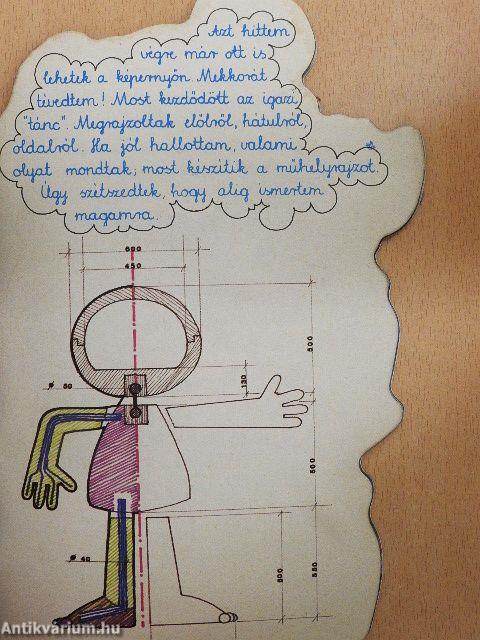 Azt hittem
végre már ott is
lehetek a képernyőn. Mekkorát
tévedtem! Most kezdődött az igazi
"tánc". Megrajzoltak elölről, hátulról,
oldalról. Ha jól hallottam, valami
olyat mondtak, most készítik a műhelyrajzot.
Úgy szétszedtek, hogy alig ismertem
magamra.
600
450
600
130
ø 50
500
ø 40
500
550
Antikvárium.hu